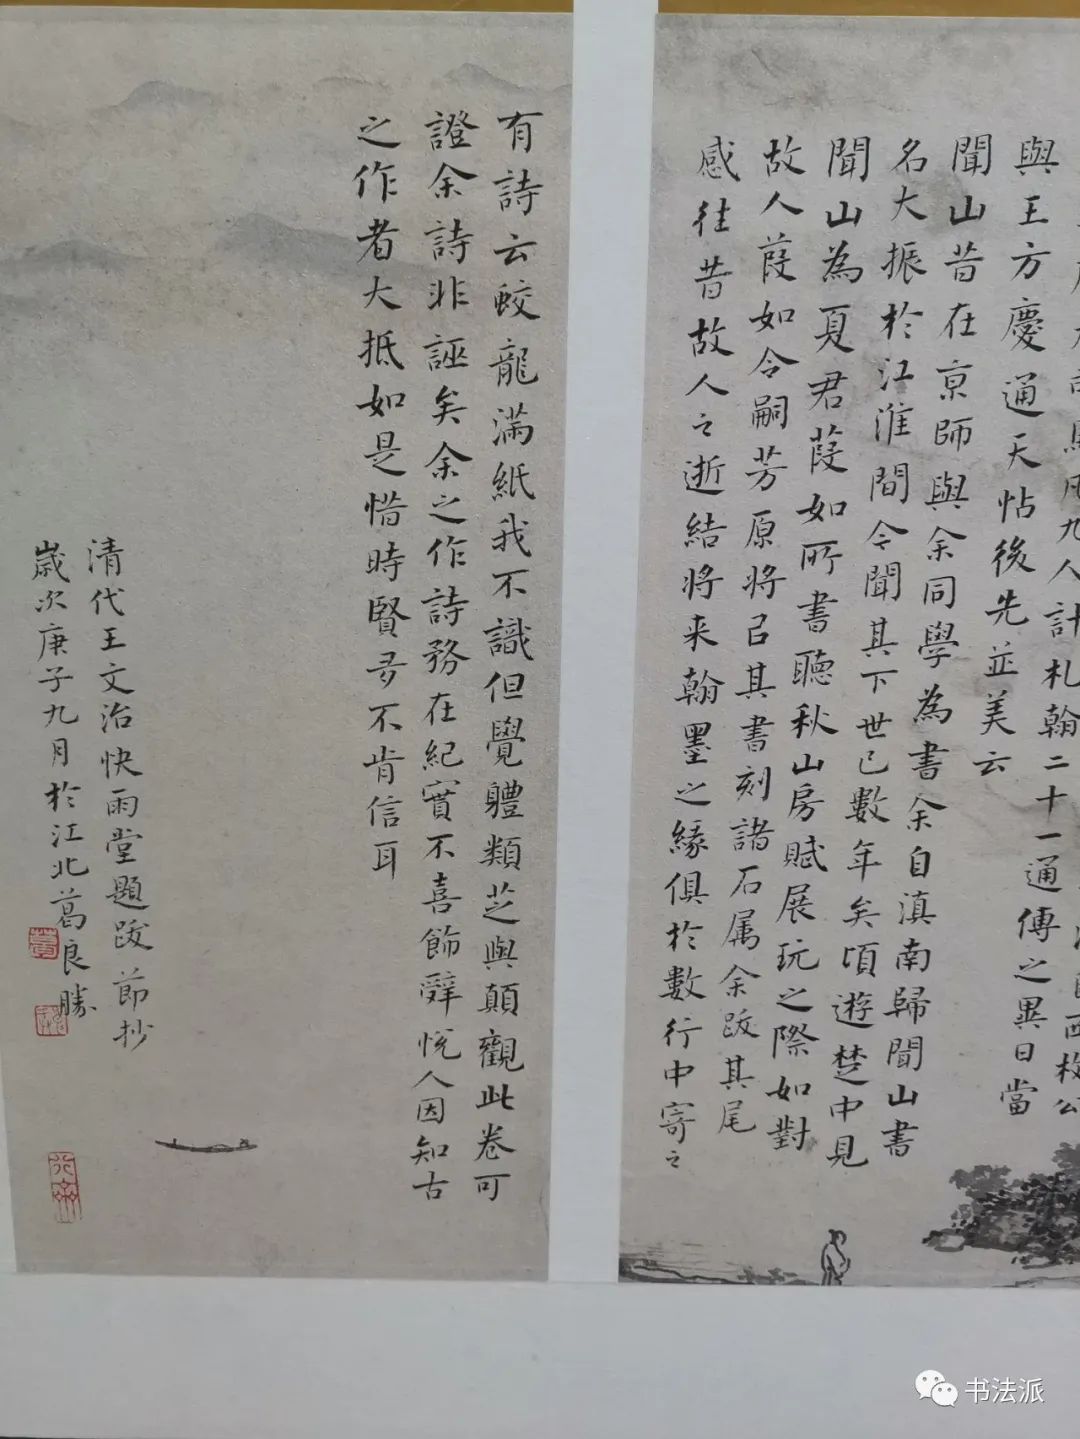 馬周九人計札翰二十一通傳之異日當
與王方慶通天帖後先並美云
聞山昔在京師與余同學為書余自滇南歸聞山書
名大振於江淮間今聞其下世已數年矣頃遊楚中見
聞山為夏君葭如所書聽秋山房賦展玩之際如對
故人葭如令嗣芳原將已其書刻諸石属余跋其尾
感往昔故人之逝結將来翰墨之緣俱於數行中寄之
有詩云蛟龍滿紙我不識但覺體類芝與顛觀此卷可
證余詩非誣矣余之作詩務在紀實不喜飾辭悅人因知古
之作者大抵如是惜時賢多不肯信耳
清代王文治快雨堂題跋節抄
歲次庚子九月於江北葛良勝
书法派